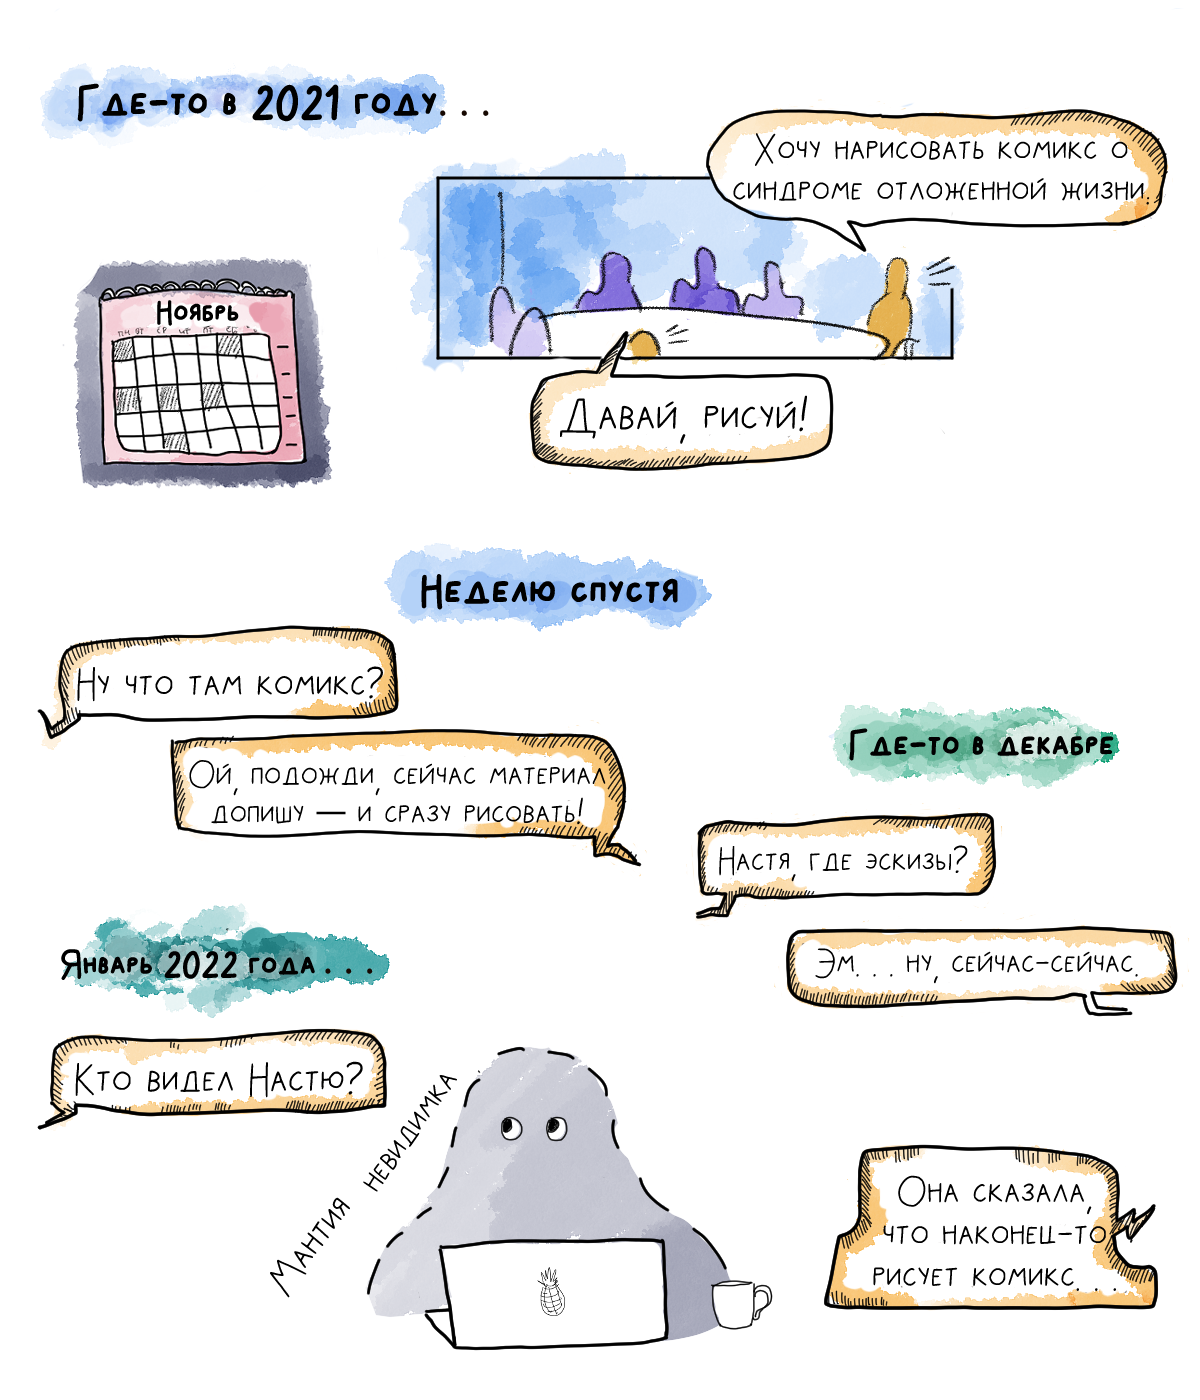 Где-то в 2021 году...
Хочу нарисовать комикс о
синдроме отложенной жизни.
Ноябрь
пн вт ср чт пт сб
Давай, рисуй!
Неделю спустя
Ну что там комикс?
Ой, подожди, сейчас материал
допишу — и сразу рисовать!
Где-то в декабре
Настя, где эскизы?
Эм... ну, сейчас-сейчас.
Январь 2022 года...
Кто видел Настю?
Мантия невидимка
Она сказала,
что наконец-то
рисует комикс...